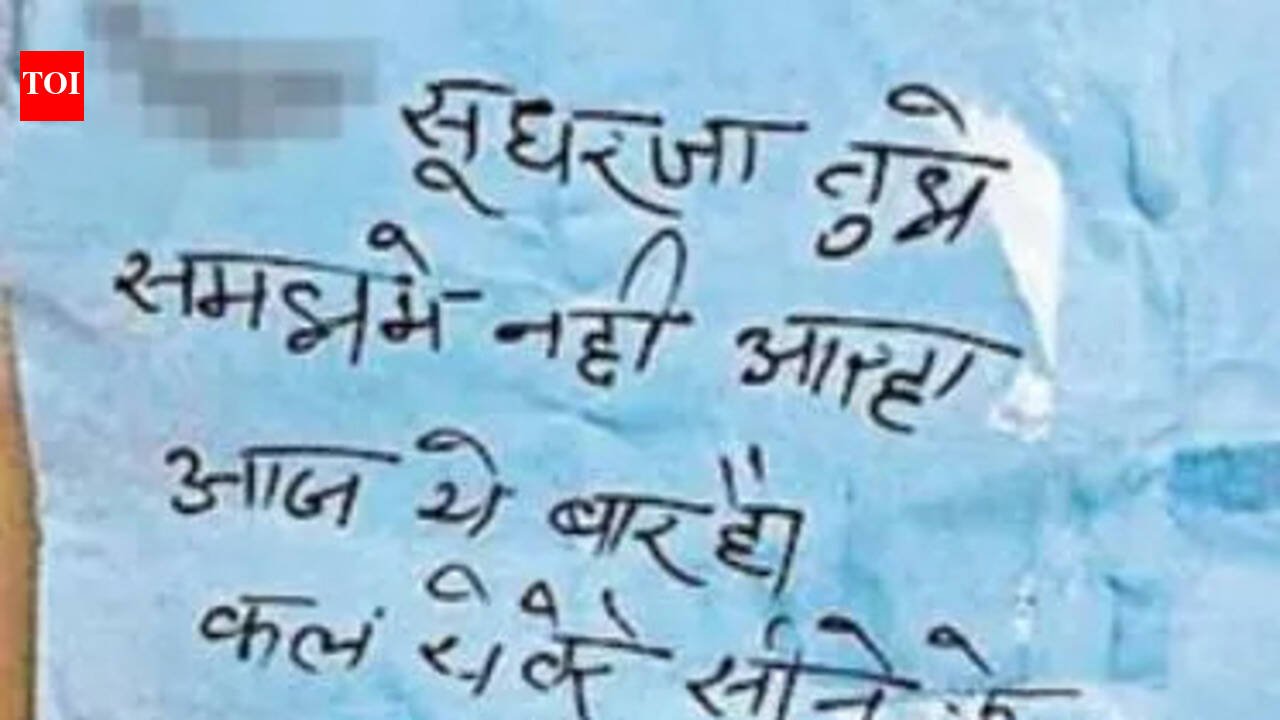 TOI
सूधरजा तुझे
समझमे नही आरहा
आज ये बार है
कल येके सीने के